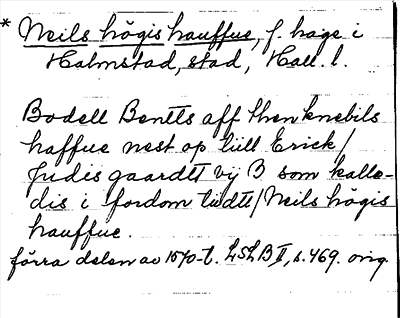 * Neils högis hauffue, f. hage i
Halmstad, stad, Hall. l.
Bodell Bentts aff then knebils
haffue nest op till Erick/
Judis gaardtt vij B som kalle-
dis i fordom tiidtt/Neils högis
hauffue.
förra delen av 1570-t. LSLB II, s. 469. orig.